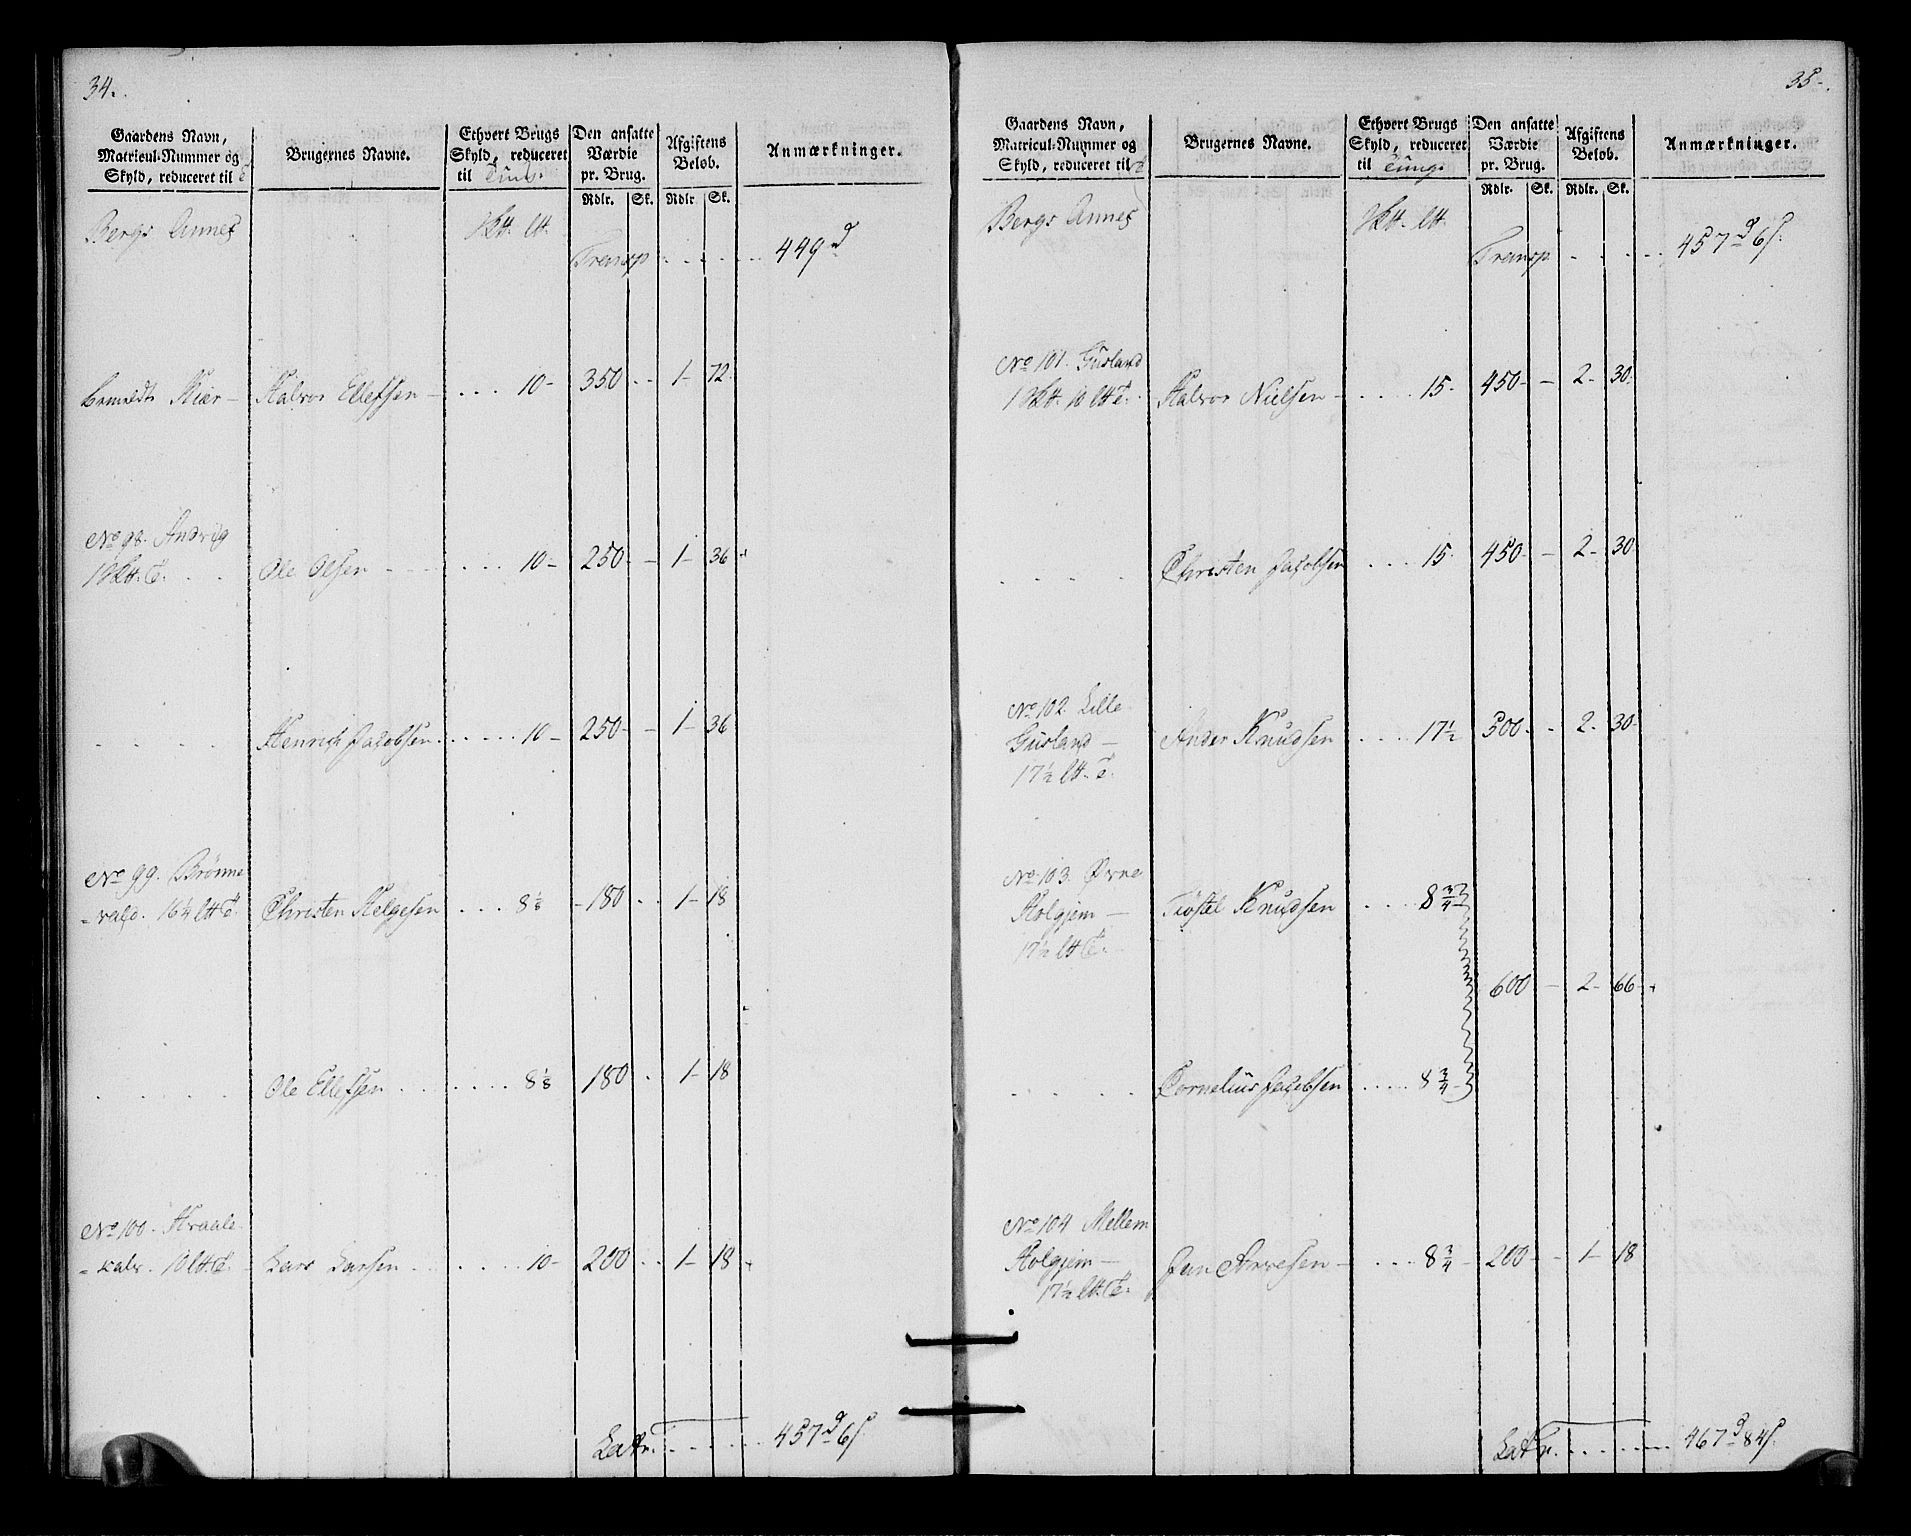 34.
Gaardens Navn,
Matricul-Nummer og
Skyld, reduceret til T
Brugernes Navne.
Ethvert Brugs
Skyld, reduceret
til Tung.
Den ansatte
Værdie
pr. Brug.
Afgiftens
Beløb.
Anmærkninger.
Rdlr. Sk. Rdlr. Sk.
Bergs Annex
Transp . . . . . 449 d
Kiær — Halvor Ellefsen — . . . 10 — 350 . . 1 — 72.
No 98.
Ole Olsen . . . 10 — 250 — 1 — 36
. . . . Henrich Jacobsen . . . . . 10 — 250 — 1 — 36
No 99. Brönne
-vald. 16¼ ltt T. Christen Helgesen . . . 8⅛ — 180 . . 1 — 18
. . . . Ole Ellefsen . . . . . 8⅛ 180 . . 1 — 18
No 100. Kraale
10 ltt T. Lars Larsen . . . . . 10 — 200 . . 1 — 18
Latr. . . . . . 457 d 6 s
35.
Gaardens Navn,
Matricul-Nummer og
Skyld, reduceret til T
Brugernes Navne.
Ethvert Brugs
Skyld, reduceret
til Tung.
Den ansatte
Værdie
pr. Brug.
Afgiftens
Beløb.
Anmærkninger.
Rdlr. Sk. Rdlr. Sk.
Bergs Annex
Transp . . . . . 457 d 6 s.
No 101. Gusland
Halvor Nielsen — . . . . 15. 450 — 2. 30.
. . . . Christen Jacobsen . . . 15. 450 — 2. 30
No 102. Lille
Gusland — Ander Knudsen . . . . 17½ 500 . . 2. 30
17½ ltt. T.
No 103. Øvre
Holgjem — Knudsen . . . . 8¾
17½ ltt T.
600 — 2. 66
. . . . Cornelius Jacobsen . . . . . 8¾
No 104 Mellem
Holgjem — . . . 8¾ — 200 — 1 — 18
17½ ltt. T.
Latr. . . . . . 467 d 84 s.